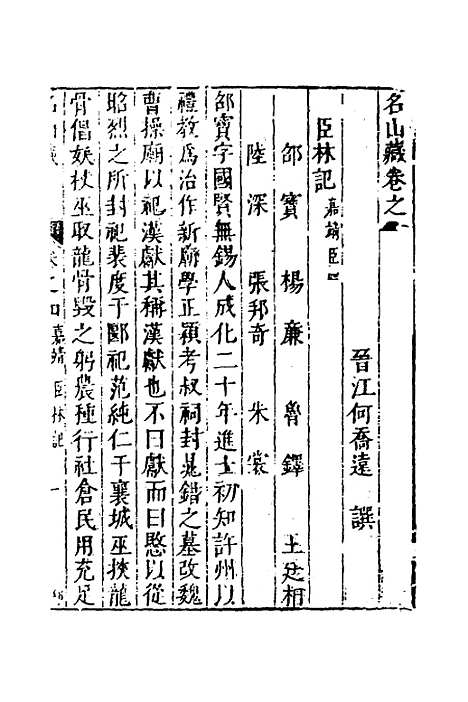 名山藏卷之
晉江何喬遠 譔
臣林記 嘉靖臣
邵寶 楊廉 魯鐸 王廷相
陸深 張邦奇 朱裳
邵寶字國賢無錫人成化二十年進士初知許州以
禮教為治作新廟學正潁考叔祠封晁錯之墓改魏
曹操廟以祀漢獻其稱漢獻也不曰獻而曰愍以從
昭烈之所封祀裴度于郾祀范純仁于襄城巫挾龍
骨倡妖杖巫取龍骨毀之躬農種行社倉民用充足
名山藏 卷之四 嘉靖 臣林記 一